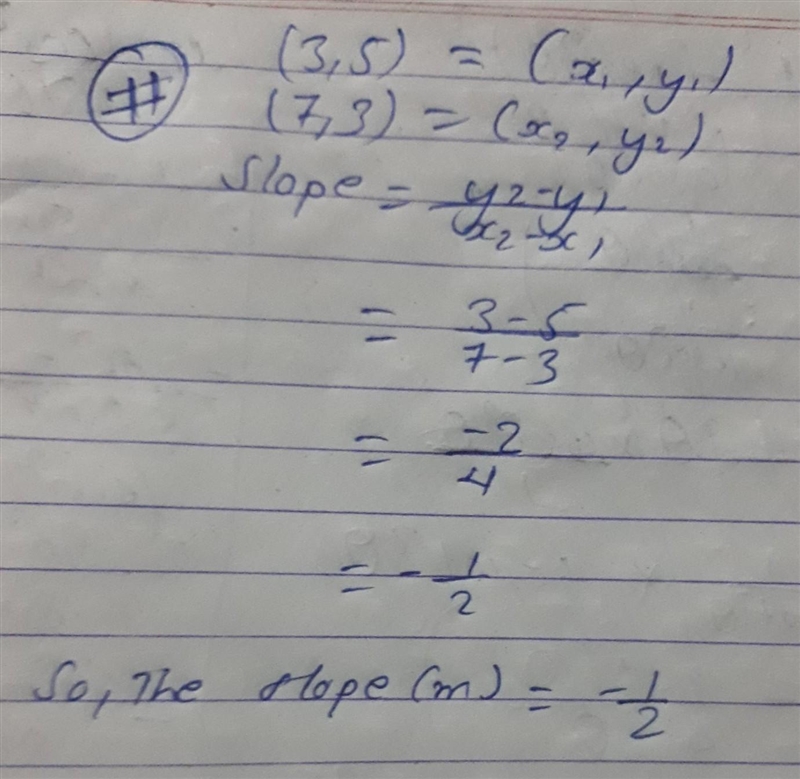 (3,5) = (x₁, y₁)
# (7,3) = (x₂, y₂)
Slope = y₂-y₁ / x₂-x₁
= 3-5 / 7-3
= -2 / 4
= -1/2
So, The slope (m) = -1/2